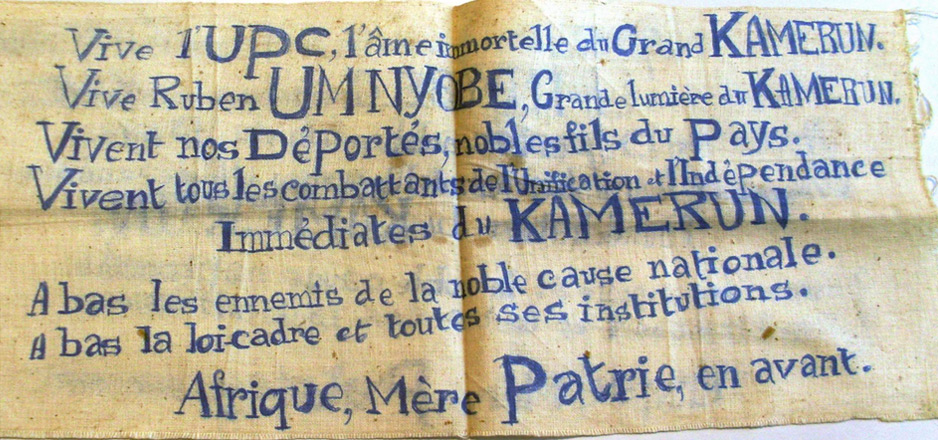 Vive l'UPC, l'âme immortelle du Grand KAMERUN.
Vive Ruben UM NYOBE, Grande lumière du KAMERUN.
Vivent nos Déportés, nobles fils du Pays.
Vivent tous les combattants de l'Unification et l'Indépendance
Immédiates du KAMERUN.
A bas les ennemis de la noble cause nationale.
A bas la loi-cadre et toutes ses institutions.
Afrique, Mère Patrie, en avant.